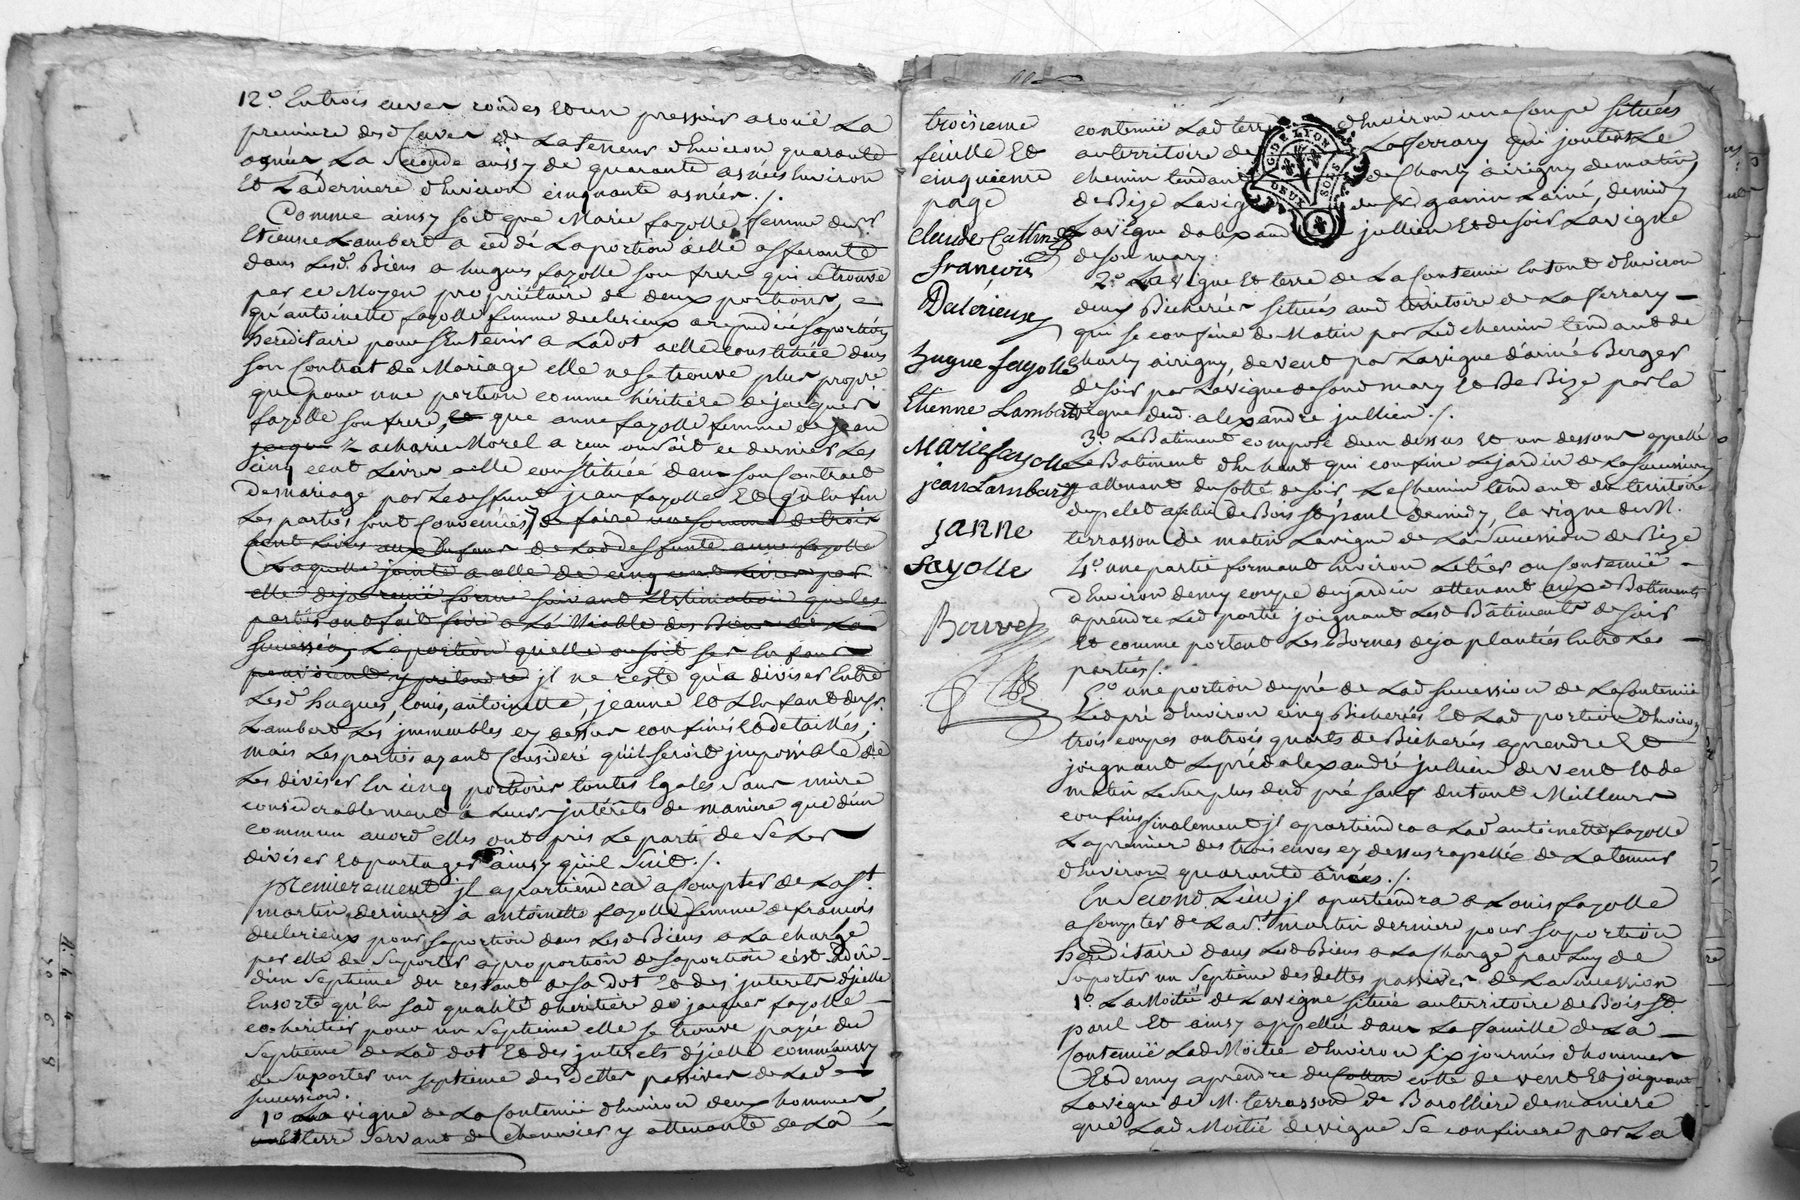 12.° En trois cuves rondes et un pressoir a rouë La
premiere des d. Cuves de La teneur d'huiron quarante
asnées La Seconde aussy de quarante asnées huiron
Et La derniere d'huiron cinquante asnées ./.
Comme ainsy soit que Marie fayolle femme dud. Sr.
Etienne Lambert a cedé La portion à elle afferante
dans Lesd. Biens a hugues fayolle son frere qui se trouve
par ce Moyen propriétaire de deux portions, -
qu'antoinette fayolle femme declerieux a repudié sa portion
héréditaire pour s'En tenir a La dot a elle constituée dans
son Contrat de Mariage elle ne se trouve plus propre
que pour une portion comme héritière de jacques
fayolle son frere, et que anne fayolle femme de jean
jaque Zacharie Morel a recu ou soit ce dernier Les
cinq cent Livres a elle constituée dans son Contrait
de mariage par Le deffunt jean fayolle Et qu'En fin
Les parties sont Convenües de faire une somme de trois
cent Livres aux Enfans de Lad. deffunte anne fayolle
Laquelle jointe a celle de cinq cent Livres par
elle deja recuë forme suivant L'Estimation que les
parties ont fait faire a L'amiable des Biens de La
succession La portion quelle ou soit ses Enfans
peuvent y prétendre il ne reste qu'a diviser Entre
Lesd. hugues, louis, antoinette, jeanne et L'Enfant dud. Sr.
Lambert Les jmmeubles cy dessus confinés et detaillés ;
mais Les parties ayant Consideré qu'il seroit jmpossible de
Les diviser En cinq portions toutes Egales Sans nuire
considerablement à Leurs jntérêts de maniere que d'un
commun accord elles ont pris Le parti de Se Les
diviser et partager ainsy qu'il Suit ./.
Premierement jl apartiendra a Compter de La St.
martin derniere à antoinette fayolle femme de françois
declerieux pour sa portion dans Lesd. Biens a La charge
par elle de Suporter a proportion de sa portion c'est adire
d'un Septieme du restant de sa dot Et des jnterets d'jcelle
Ensorte qu'En sad. qualité d'héritiere de jacques fayolle
cohéritier pour un Septieme elle se trouve payée du
Septieme de Lad. dot Et des jnterets d'jcelle comm'aussy
de Suporter un Septieme des dettes passives de Lad.
succession.
1.° La vigne de La Contenuë d'huiron deux hommes,
et terre Servant de Chenevier y attenante de La
troisieme
feuille Et
cinquieme
page
Claude Catherin
françois
Dalerieux
hugue fayolle
Etienne Lambert
Marie fayolle
jean Lambert
Janne
fayolle
Bouvet
G. DE LYON
DEUX SOLS
contenuë Lad. terre d'huiron une Coupe situées
au territoire de LaSerrary qui joutent Le
chemin tendant de Charly à jrigny de matin,
de Bize La vigne du Sr. garin Lainé, de midy
La vigne d'alexandre jullien Et de soir La vigne
de son mary.
2.° La vigne Et terre de La Contenuë En tout d'huiron
deux Bicherées situées aud. territoire de LaSerrary -
qui se confine de Matin par Led. chemin tendant de
charly a jrigny, de vent par La vigne d'aimé Berger
de soir par La vigne de sond. mary Et De Bize par la
vigne dud. alexandre jullien ./.
3.° Le Batiment composé d'un dessus Et un dessous appellé
Le Batiment d'huhaut qui confine Le jardin de La succession
y attenant du Cotté de soir, Le Chemin tendant du territoire
dupelet a celui de Bois St. paul de midy, la vigne de M.
terrasson de matin La vigne de La Succession de Bize
4.° une partie formant huiron Le tiers ou Contenuë -
d'huiron demy coupe du jardin attenant auxd. Batiments
a prendre Lad. partie joignant Lesd. Bâtiments de soir
Et comme portent Les Bornes deja plantées Entre Les -
parties ./.
5.° une portion du pré de Lad. succession de La Contenuë
Led. pré d'huiron cinq Bicherées Et Lad. portion d'huiron
trois coupes ou trois quarts de Bicherées a prendre Et
joignant Le pré d'alexandre jullien de vent Et de
matin Le Surplus dud. pré sauf du tout Meilleurs
confins finalement jl apartiendra a Lad. antoinette fayolle
La premiere des trois cuves cy dessus rapellée de La teneur
d'huiron quarante ânées ./.
En Second Lieu jl apartiendra a Louis fayolle
a Compter de La St. martin derniere pour sa portion
héréditaire dans Lesd. Biens a La charge par Luy de
Suporter un Septieme des dettes passives de La Succession
1.° La Moitié de La vigne située au territoire de Bois St.
paul Et ainsy appellée dans La famille de La -
Contenuë Lad. Moitié d'huiron Six journés d'hommes
Et demy a prendre du Cotté de vent Et joignant
La vigne de M. terrasson de Barolliere de maniere
que Lad. Moitié de vigne Se confinera par La